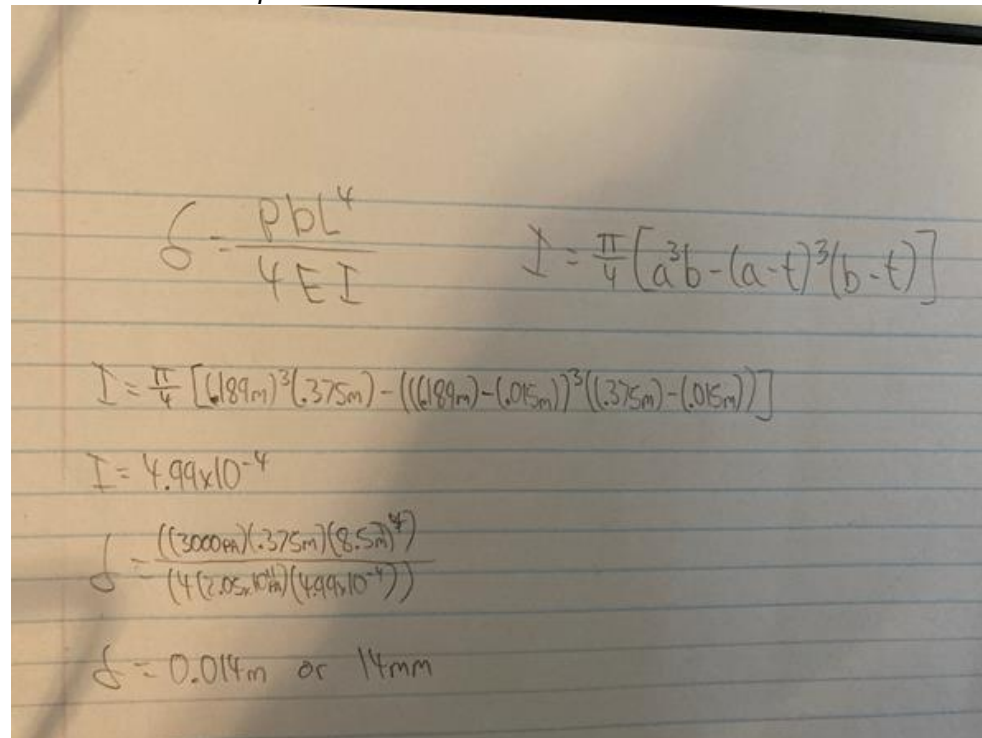 δ = PbL⁴ / 4EI    I = π/4 [a³b - (a-t)³(b-t)]
I = π/4 [(.189m)³(.375m) - (((.189m)-(.015m))³((.375m)-(.015m))]
I = 4.99x10⁻⁴
δ = ((3000PA)(.375m)(8.5m)⁴) / (4(2.05x10¹¹PA)(4.99x10⁻⁴))
δ = 0.014m or 14mm